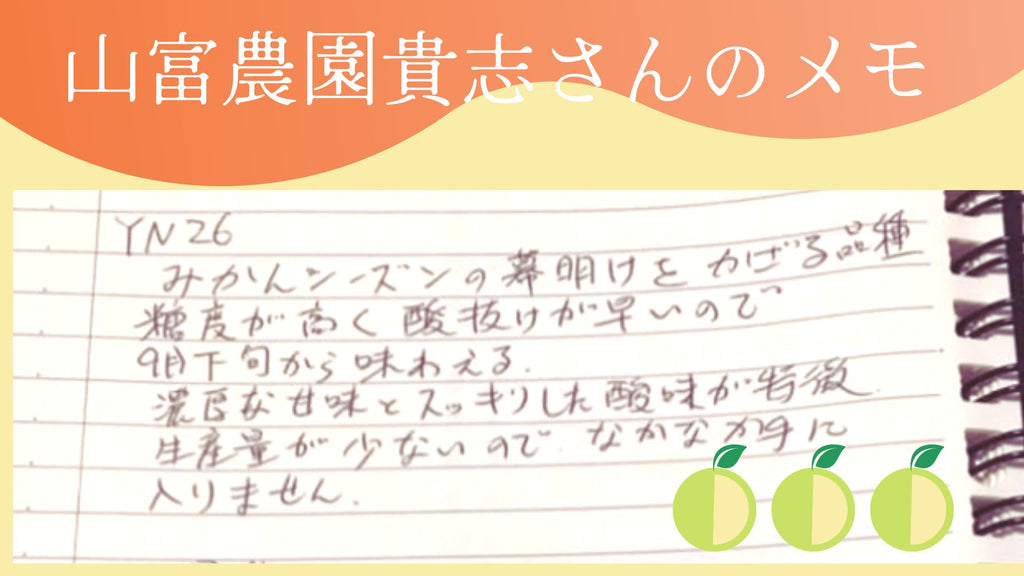 山富農園貴志さんのメモ
YN26
みかんシーズンの幕明けを かざる品種
糖度が高く酸抜けが早いので
9月下旬から味わえる.
濃厚な甘味とスッキリした酸味が特徴.
生産量が少ないので なかなか手に
入りません.